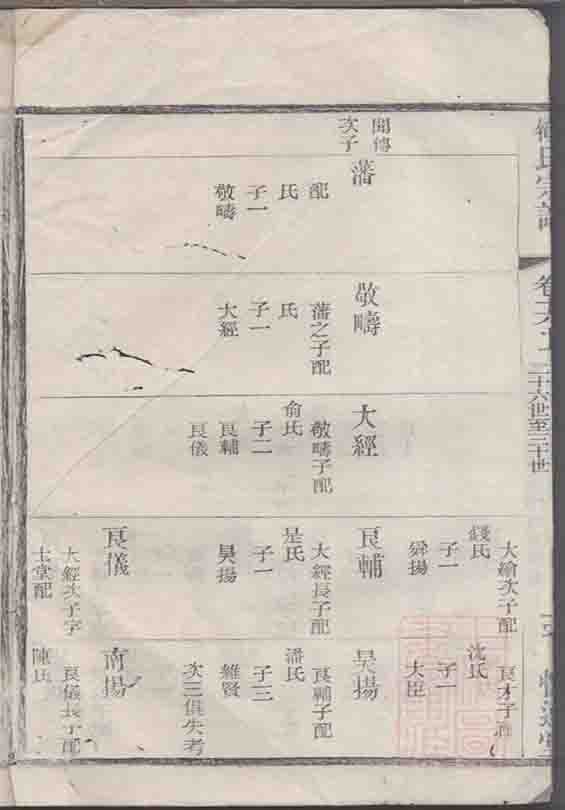 氏宗譜
二十六世至三十世
聞傳
次子
藩
配
氏
子一
敬疇
敬疇
藩之子配
氏
子一
大經
大經
敬疇子配
俞氏
子二
良輔
良儀
大繪次子配
錢氏
子一
舜揚
良輔
大經長子配
是氏
子一
昊揚
良儀
大經次子字
士堂配
良才子配
沈氏
子一
大臣
昊揚
良輔子配
潘氏
子三
維賢
次三俱失考
南揚
良儀長子配
陳氏